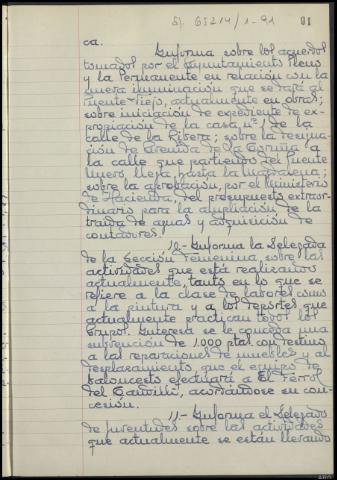 Sj. 65214/1-91
81
ca.
Informa sobre los acuerdos
tomados por el Ayuntamiento Pleno
y la Permanente en relación con la
nueva iluminación que se hará al
Puente Viejo, actualmente en obras;
sobre iniciación de expediente de ex-
propiación de la casa nº 1 de la
calle de la Ribera; sobre la desina-
ción de Avenida de La Coruña a
la calle que partiendo del Puente
Nuevo, llega hasta la Magdalena;
sobre la aprobación, por el Ministerio
de Hacienda, del presupuesto extraor-
dinario para la ampliación de la
traida de aguas y adquisición de
contadores.
10- Informa la Delegada
de la Sección Femenina sobre las
actividades que está realizando
actualmente, tanto en lo que se
refiere a la clase de labores como
a la pintura y a los deportes que
actualmente practican todos los
Grupos. Interesa se le conceda una
subvención de 1.000 ptas. con destino
a las reparaciones de muebles y al
desplazamiento que el equipo de
baloncesto efectuará a El Ferrol
del Caudillo, acordándose su con-
cesión.
11- Informa el Delegado
de Juventudes sobre las actividades
que actualmente se están llevando